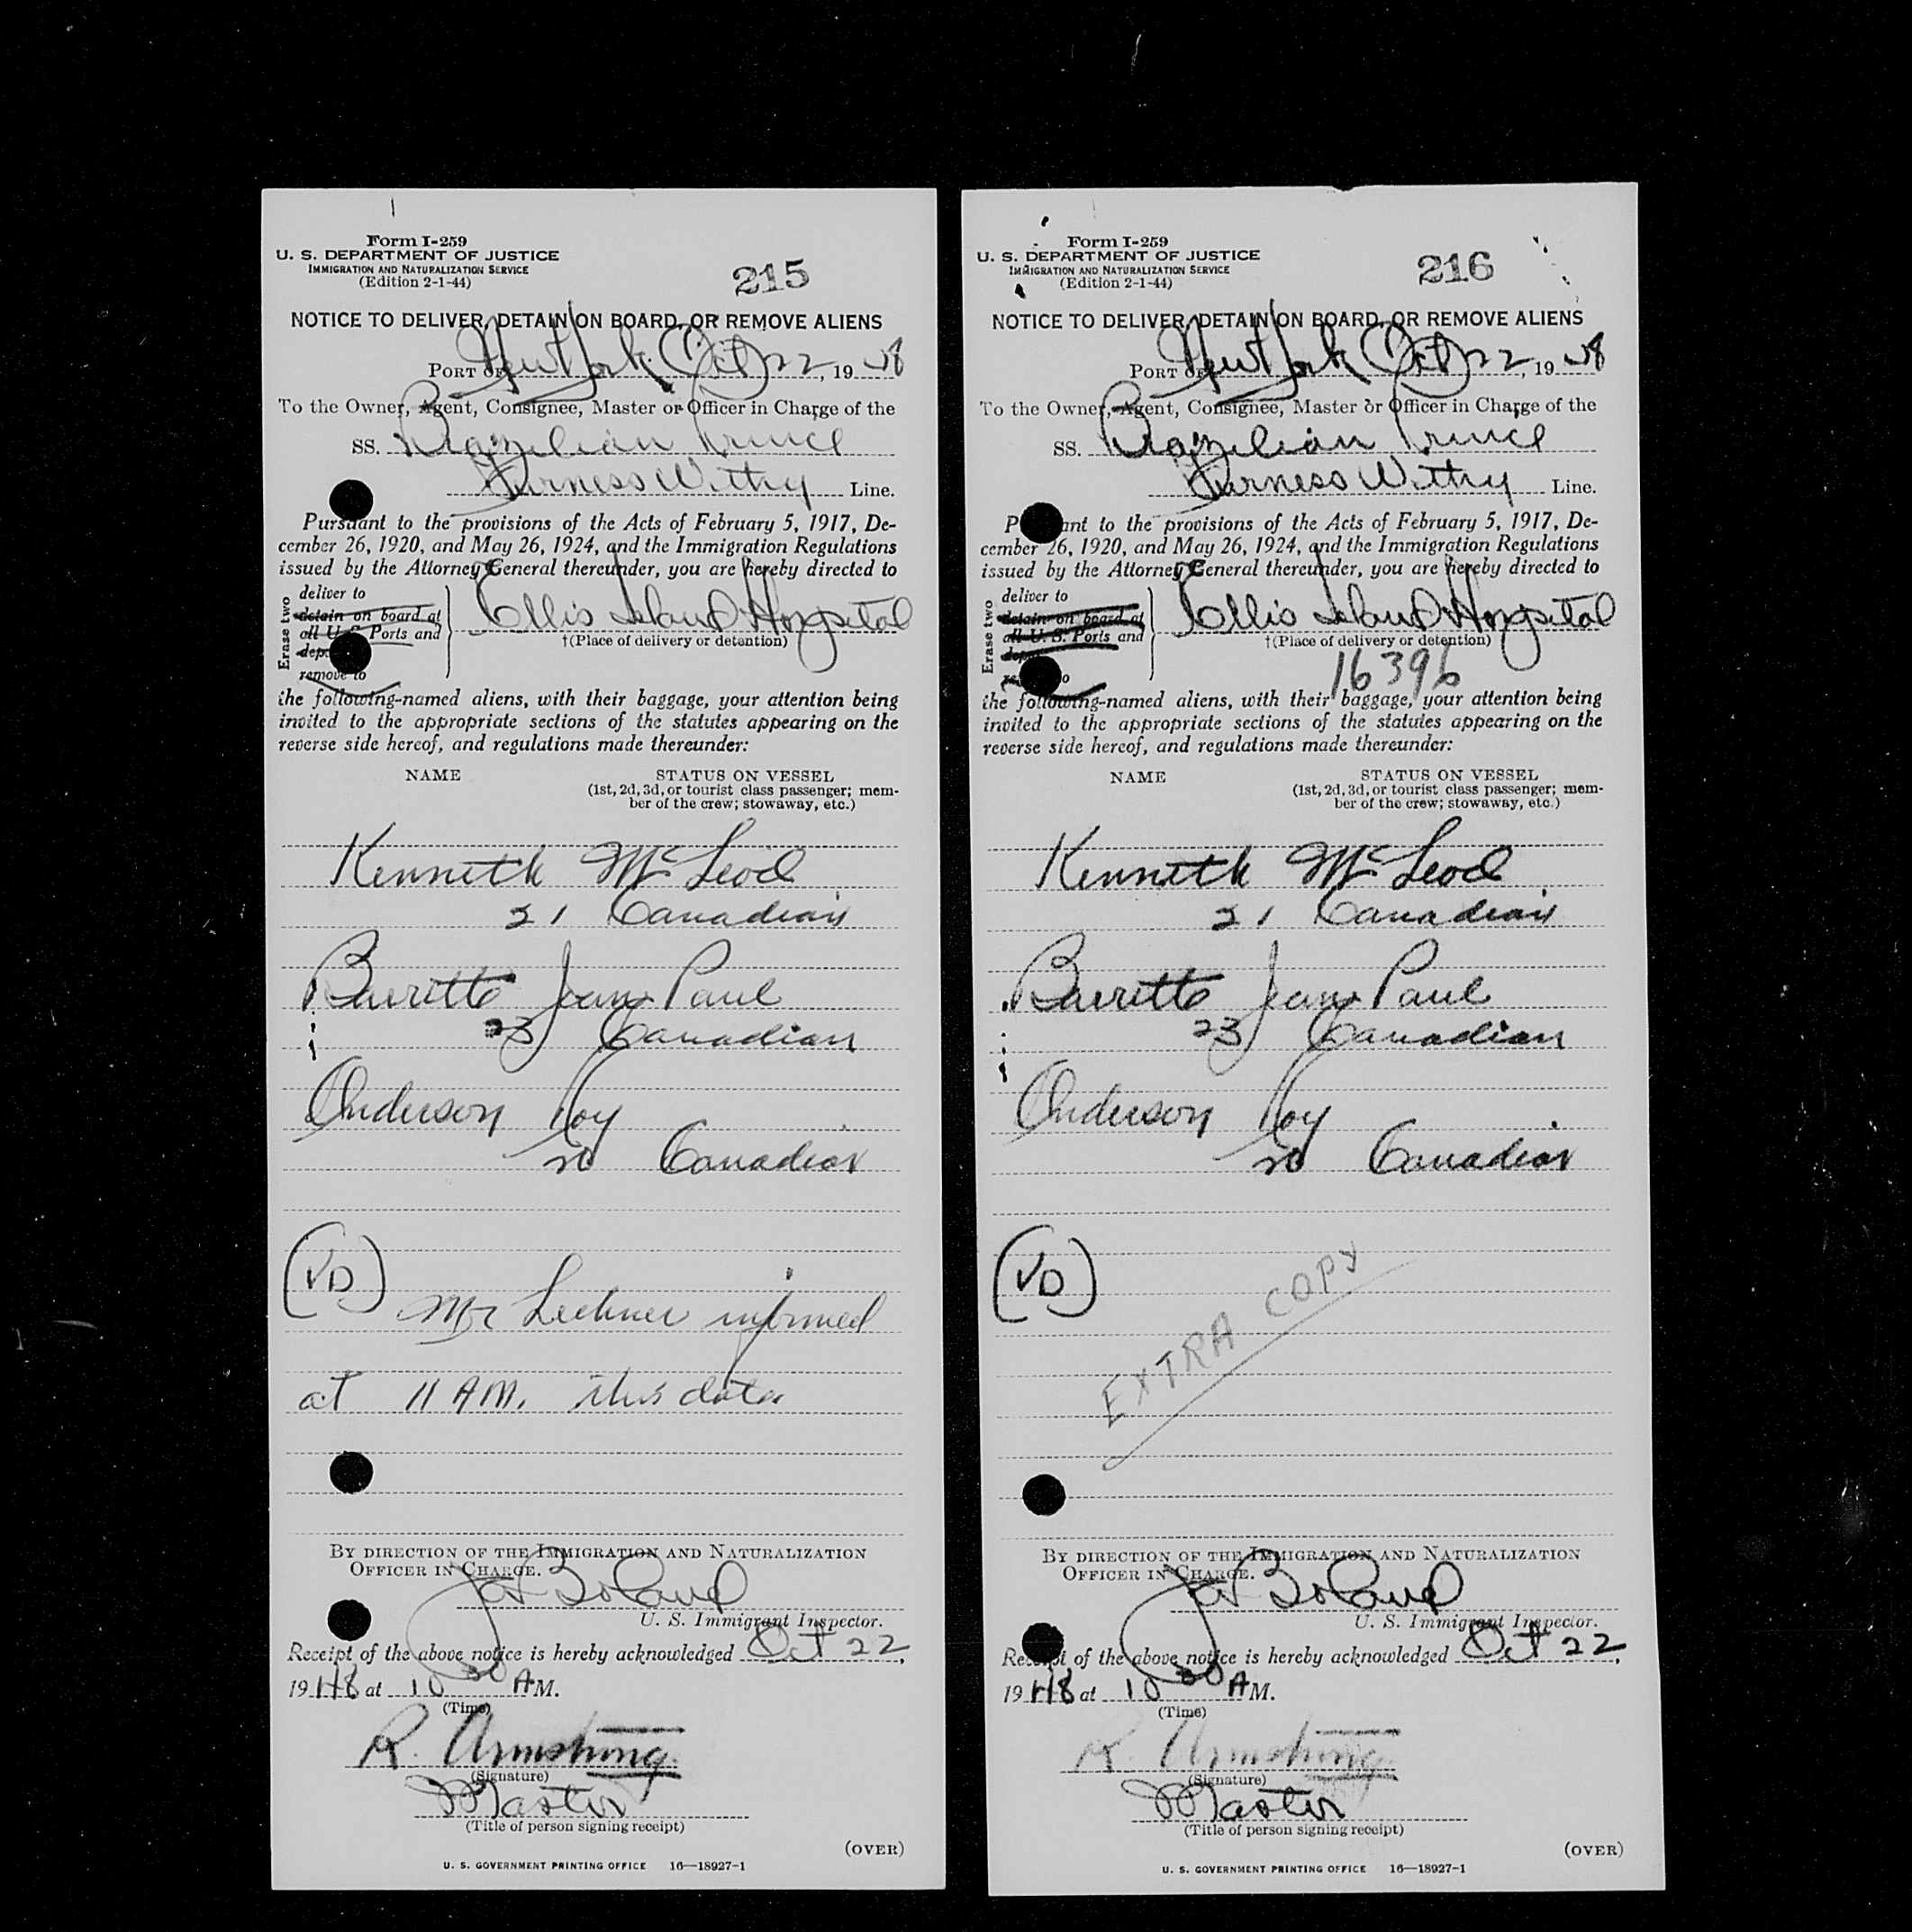 Form I-259
U. S. DEPARTMENT OF JUSTICE
IMMIGRATION AND NATURALIZATION SERVICE
(Edition 2-1-44)
215
NOTICE TO DELIVER, DETAIN ON BOARD, OR REMOVE ALIENS
PORT OF New York Oct 22, 1948
To the Owner, Agent, Consignee, Master or Officer in Charge of the
SS. Brazilian Prince
Furness Withy Line.
Pursuant to the provisions of the Acts of February 5, 1917, De-
cember 26, 1920, and May 26, 1924, and the Immigration Regulations
issued by the Attorney General thereunder, you are hereby directed to
Erase two
deliver to
detain on board at
all U. S. Ports and
remove to
Ellis Island Hospital
†(Place of delivery or detention)
the following-named aliens, with their baggage, your attention being
invited to the appropriate sections of the statutes appearing on the
reverse side hereof, and regulations made thereunder:
NAME STATUS ON VESSEL
(1st, 2d, 3d, or tourist class passenger; mem-
ber of the crew; stowaway, etc.)
Kenneth McLeod
21 Canadian
Barrette Jean Paul
23 Canadian
Anderson Roy
20 Canadian
(VD)
Mr Lechner informed
at 11 AM. this date
BY DIRECTION OF THE IMMIGRATION AND NATURALIZATION
OFFICER IN CHARGE.
Boland
U. S. Immigrant Inspector.
Receipt of the above notice is hereby acknowledged Oct 22,
1948 at 10 30 AM.
(Time)
R. Armstrong
(Signature)
Master
(Title of person signing receipt)
(OVER)
U. S. GOVERNMENT PRINTING OFFICE 16—18927-1
Form I-259
U. S. DEPARTMENT OF JUSTICE
IMMIGRATION AND NATURALIZATION SERVICE
(Edition 2-1-44)
216
NOTICE TO DELIVER, DETAIN ON BOARD, OR REMOVE ALIENS
PORT OF New York Oct 22, 1948
To the Owner, Agent, Consignee, Master or Officer in Charge of the
SS. Brazilian Prince
Furness Withy Line.
Pursuant to the provisions of the Acts of February 5, 1917, De-
cember 26, 1920, and May 26, 1924, and the Immigration Regulations
issued by the Attorney General thereunder, you are hereby directed to
Erase two
deliver to
detain on board at
all U. S. Ports and
Ellis Island Hospital
†(Place of delivery or detention)
16396
the following-named aliens, with their baggage, your attention being
invited to the appropriate sections of the statutes appearing on the
reverse side hereof, and regulations made thereunder:
NAME STATUS ON VESSEL
(1st, 2d, 3d, or tourist class passenger; mem-
ber of the crew; stowaway, etc.)
Kenneth McLeod
21 Canadian
Barrette Jean Paul
23 Canadian
Anderson Roy
20 Canadian
(VD)
EXTRA COPY
BY DIRECTION OF THE IMMIGRATION AND NATURALIZATION
OFFICER IN CHARGE.
Boland
U. S. Immigrant Inspector.
Receipt of the above notice is hereby acknowledged Oct 22,
1948 at 10 30 AM.
(Time)
R. Armstrong
(Signature)
Master
(Title of person signing receipt)
(OVER)
U. S. GOVERNMENT PRINTING OFFICE 16—18927-1